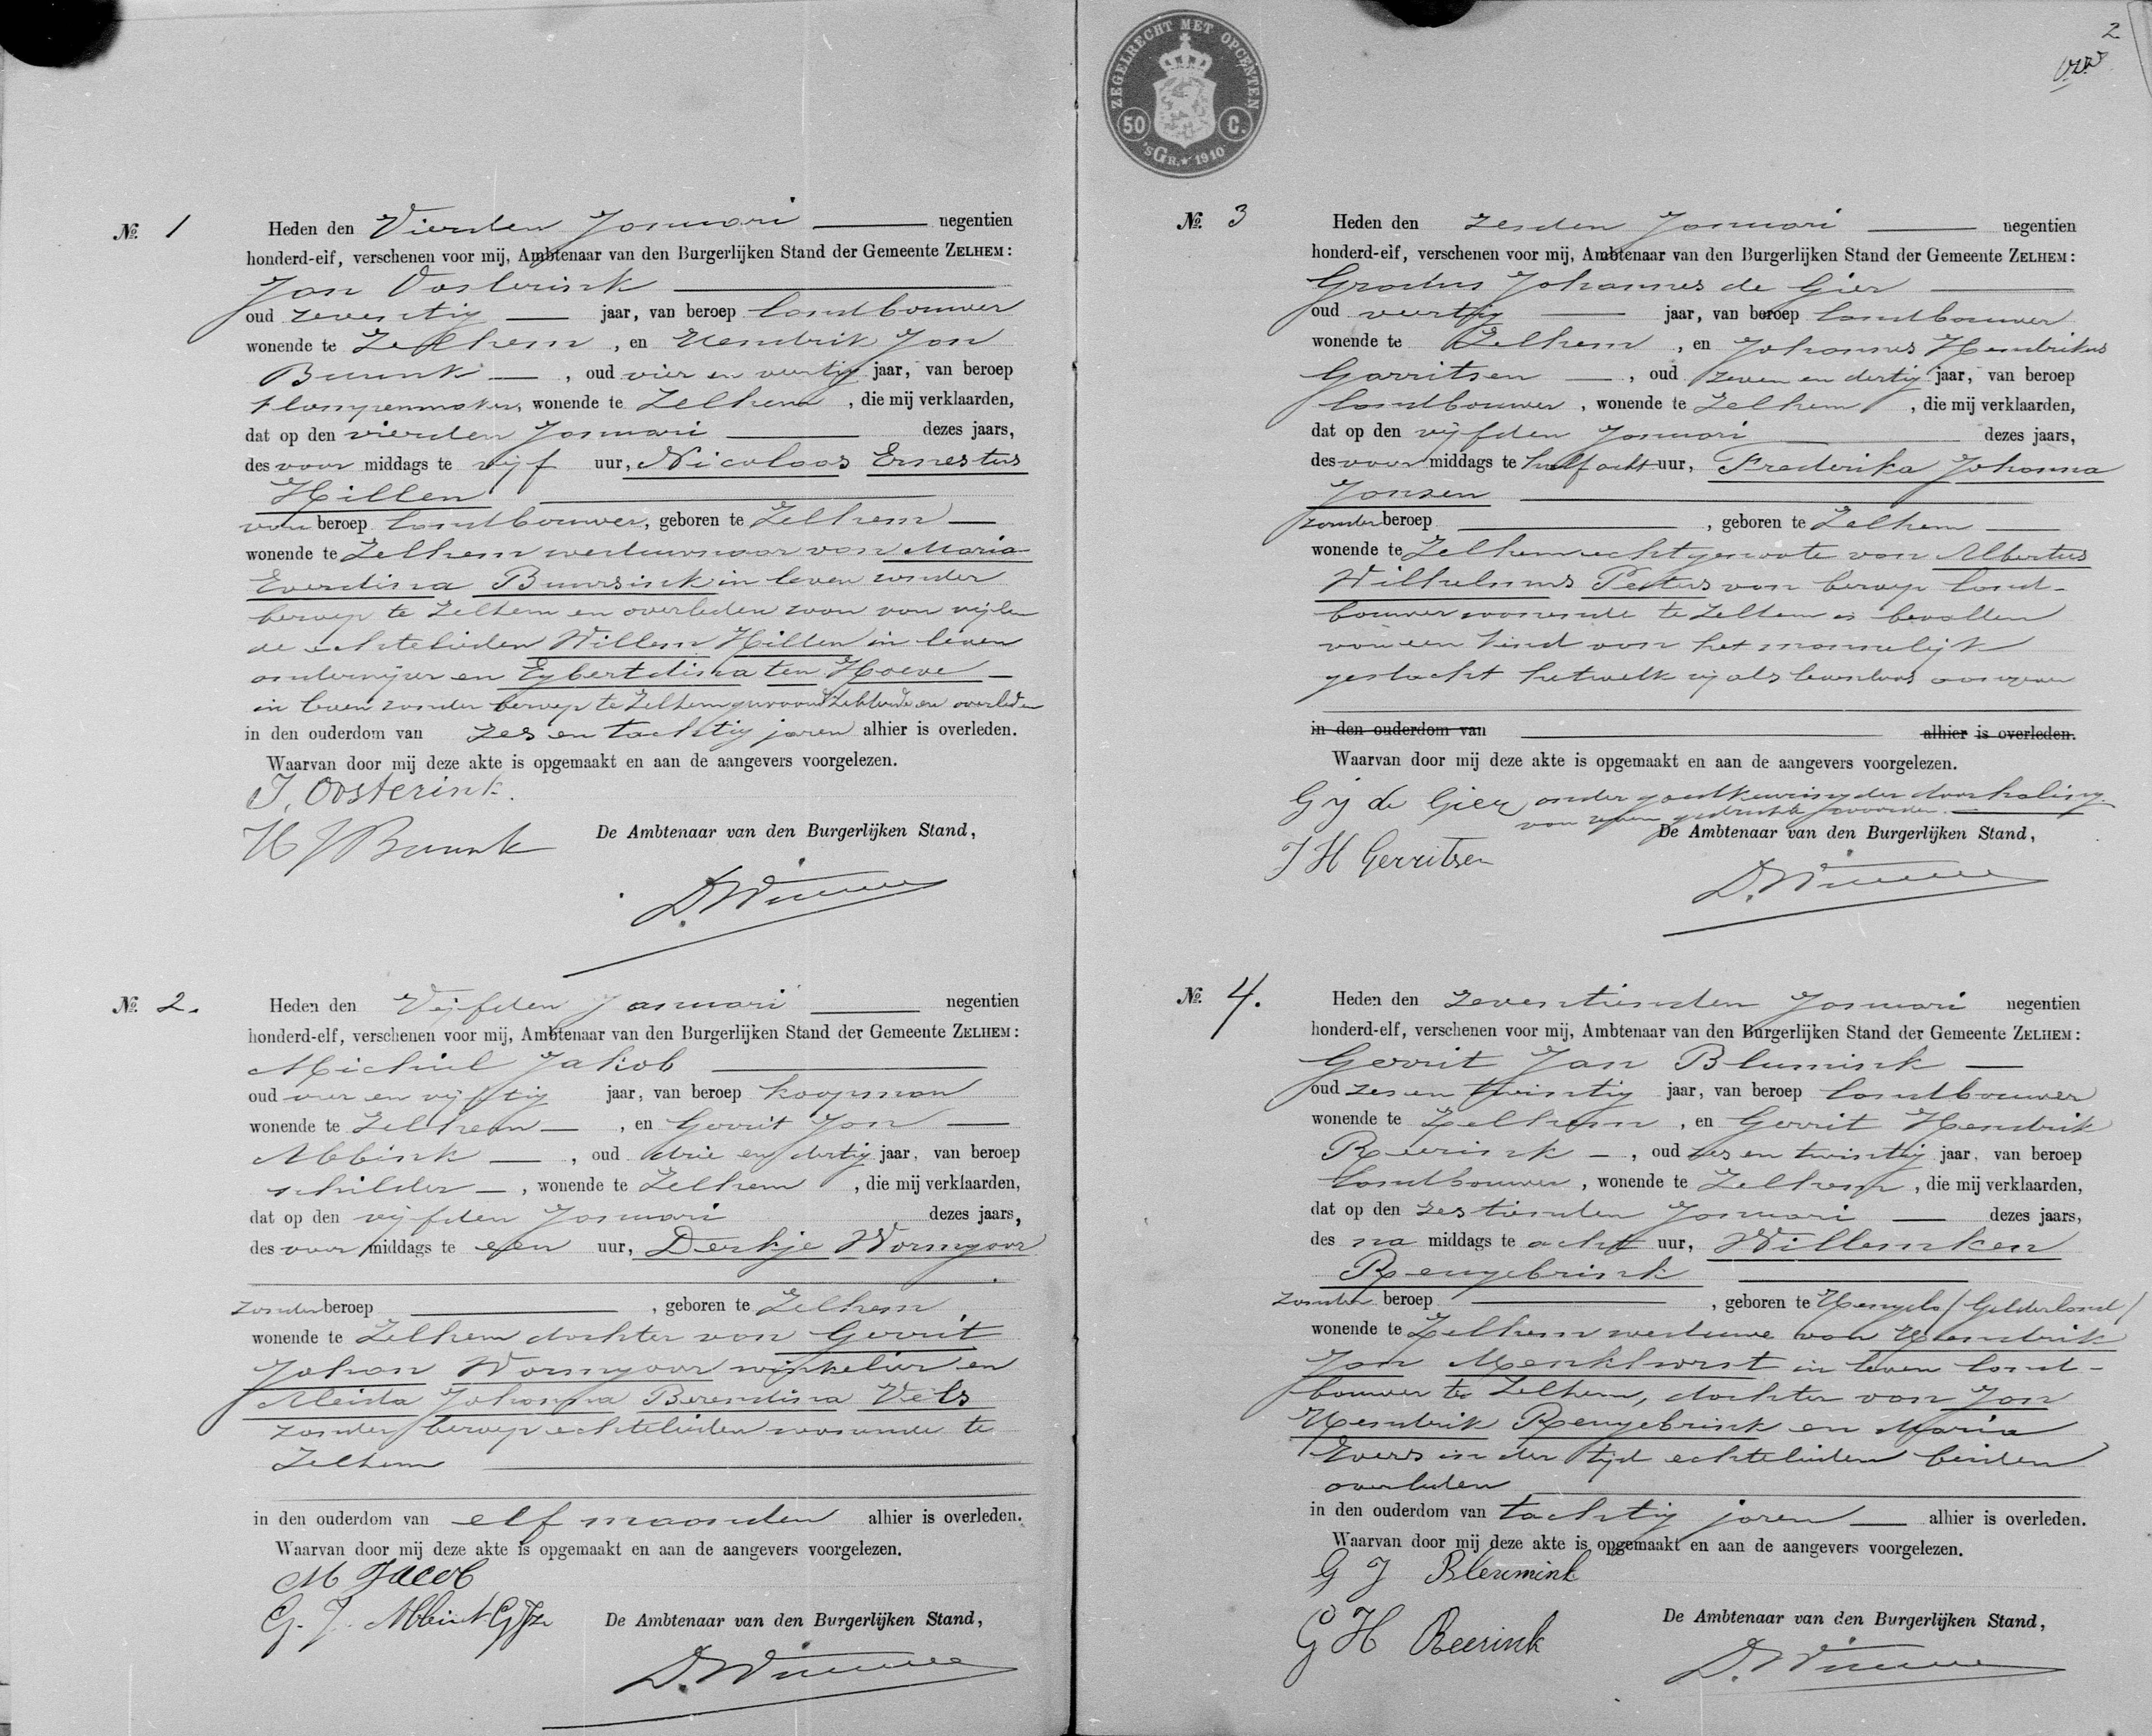 No. 1
Heden den Vierden Januari negentien
honderd-elf, verschenen voor mij, Ambtenaar van den Burgerlijken Stand der Gemeente ZELHEM:
Jan Oosterink
oud zeventig jaar, van beroep landbouwer
wonende te Zelhem, en Hendrik Jan
Buunk, oud vier en veertig jaar, van beroep
klompenmaker, wonende te Zelhem, die mij verklaarden,
dat op den vierden Januari dezes jaars,
des voor middags te vijf uur, Nicolaas Ernestus
Hillen
van beroep landbouwer, geboren te Zelhem
wonende te Zelhem weduwnaar van Maria
Everdina Buursink in leven zonder
beroep te Zelhem en overleden zoon van wijlen
de echtelieden Willem Hillen in leven
onderwijzer en Egbertdina ten Hoeve
in leven zonder beroep te Zelhem gewoond hebbende en overleden
in den ouderdom van zes en tachtig jaren alhier is overleden.
Waarvan door mij deze akte is opgemaakt en aan de aangevers voorgelezen.
J. Oosterink.
H J Buunk De Ambtenaar van den Burgerlijken Stand,
No. 2.
Heden den Vijfden Januari negentien
honderd-elf, verschenen voor mij, Ambtenaar van den Burgerlijken Stand der Gemeente ZELHEM:
Michiel Jakob
oud vier en vijftig jaar, van beroep koopman
wonende te Zelhem, en Gerrit Jan
Abbink, oud drie en dertig jaar, van beroep
schilder, wonende te Zelhem, die mij verklaarden,
dat op den vijfden Januari dezes jaars,
des voor middags te een uur, Derkje Wormgoor
zonder beroep, geboren te Zelhem,
wonende te Zelhem dochter van Gerrit
Johan Wormgoor winkelier en
Aleida Johanna Berendina Vels
zonder beroep echtelieden wonende te
Zelhem
in den ouderdom van elf maanden alhier is overleden.
Waarvan door mij deze akte is opgemaakt en aan de aangevers voorgelezen.
M Jacob
G. J. Abbink GJzn De Ambtenaar van den Burgerlijken Stand,
2
ZEGELRECHT MET OPCENTEN
50 C.
'sGR. 1910
No. 3
Heden den zesden Januari negentien
honderd-elf, verschenen voor mij, Ambtenaar van den Burgerlijken Stand der Gemeente ZELHEM:
Gradus Johannes de Gier
oud veertig jaar, van beroep landbouwer
wonende te Zelhem, en Johannes Hendrikus
Garritsen, oud zeven en dertig jaar, van beroep
landbouwer, wonende te Zelhem, die mij verklaarden,
dat op den vijfden Januari dezes jaars,
des voor middags te half acht uur, Frederika Johanna
Jansen
zonder beroep, geboren te Zelhem
wonende te Zelhem echtgenoote van Albertus
Wilhelmus Peters van beroep land-
bouwer wonende te Zelhem is bevallen
van een kind van het mannelijk
geslacht hetwelk zij als levenloos aangeven
in den ouderdom van alhier is overleden.
Waarvan door mij deze akte is opgemaakt en aan de aangevers voorgelezen.
G J de Gier onder goedkeuring der doorhaling
van zeven gedrukte woorden.
De Ambtenaar van den Burgerlijken Stand,
J H Gerritsen
No. 4.
Heden den zeventienden Januari negentien
honderd-elf, verschenen voor mij, Ambtenaar van den Burgerlijken Stand der Gemeente ZELHEM:
Gerrit Jan Blumink
oud zes en twintig jaar, van beroep landbouwer
wonende te Zelhem, en Gerrit Hendrik
Reerink, oud zes en twintig jaar, van beroep
landbouwer, wonende te Zelhem, die mij verklaarden,
dat op den zestienden Januari dezes jaars,
des na middags te acht uur, Willemken
Rengebrink
zonder beroep, geboren te Hengelo (Gelderland)
wonende te Zelhem weduwe van Hendrik
Jan Menkhorst in leven land-
bouwer te Zelhem, dochter van Jan
Hendrik Rengebrink en Maria
Evers in der tijd echtelieden beiden
overleden
in den ouderdom van tachtig jaren alhier is overleden.
Waarvan door mij deze akte is opgemaakt en aan de aangevers voorgelezen.
G J Bleumink
G H Reerink De Ambtenaar van den Burgerlijken Stand,